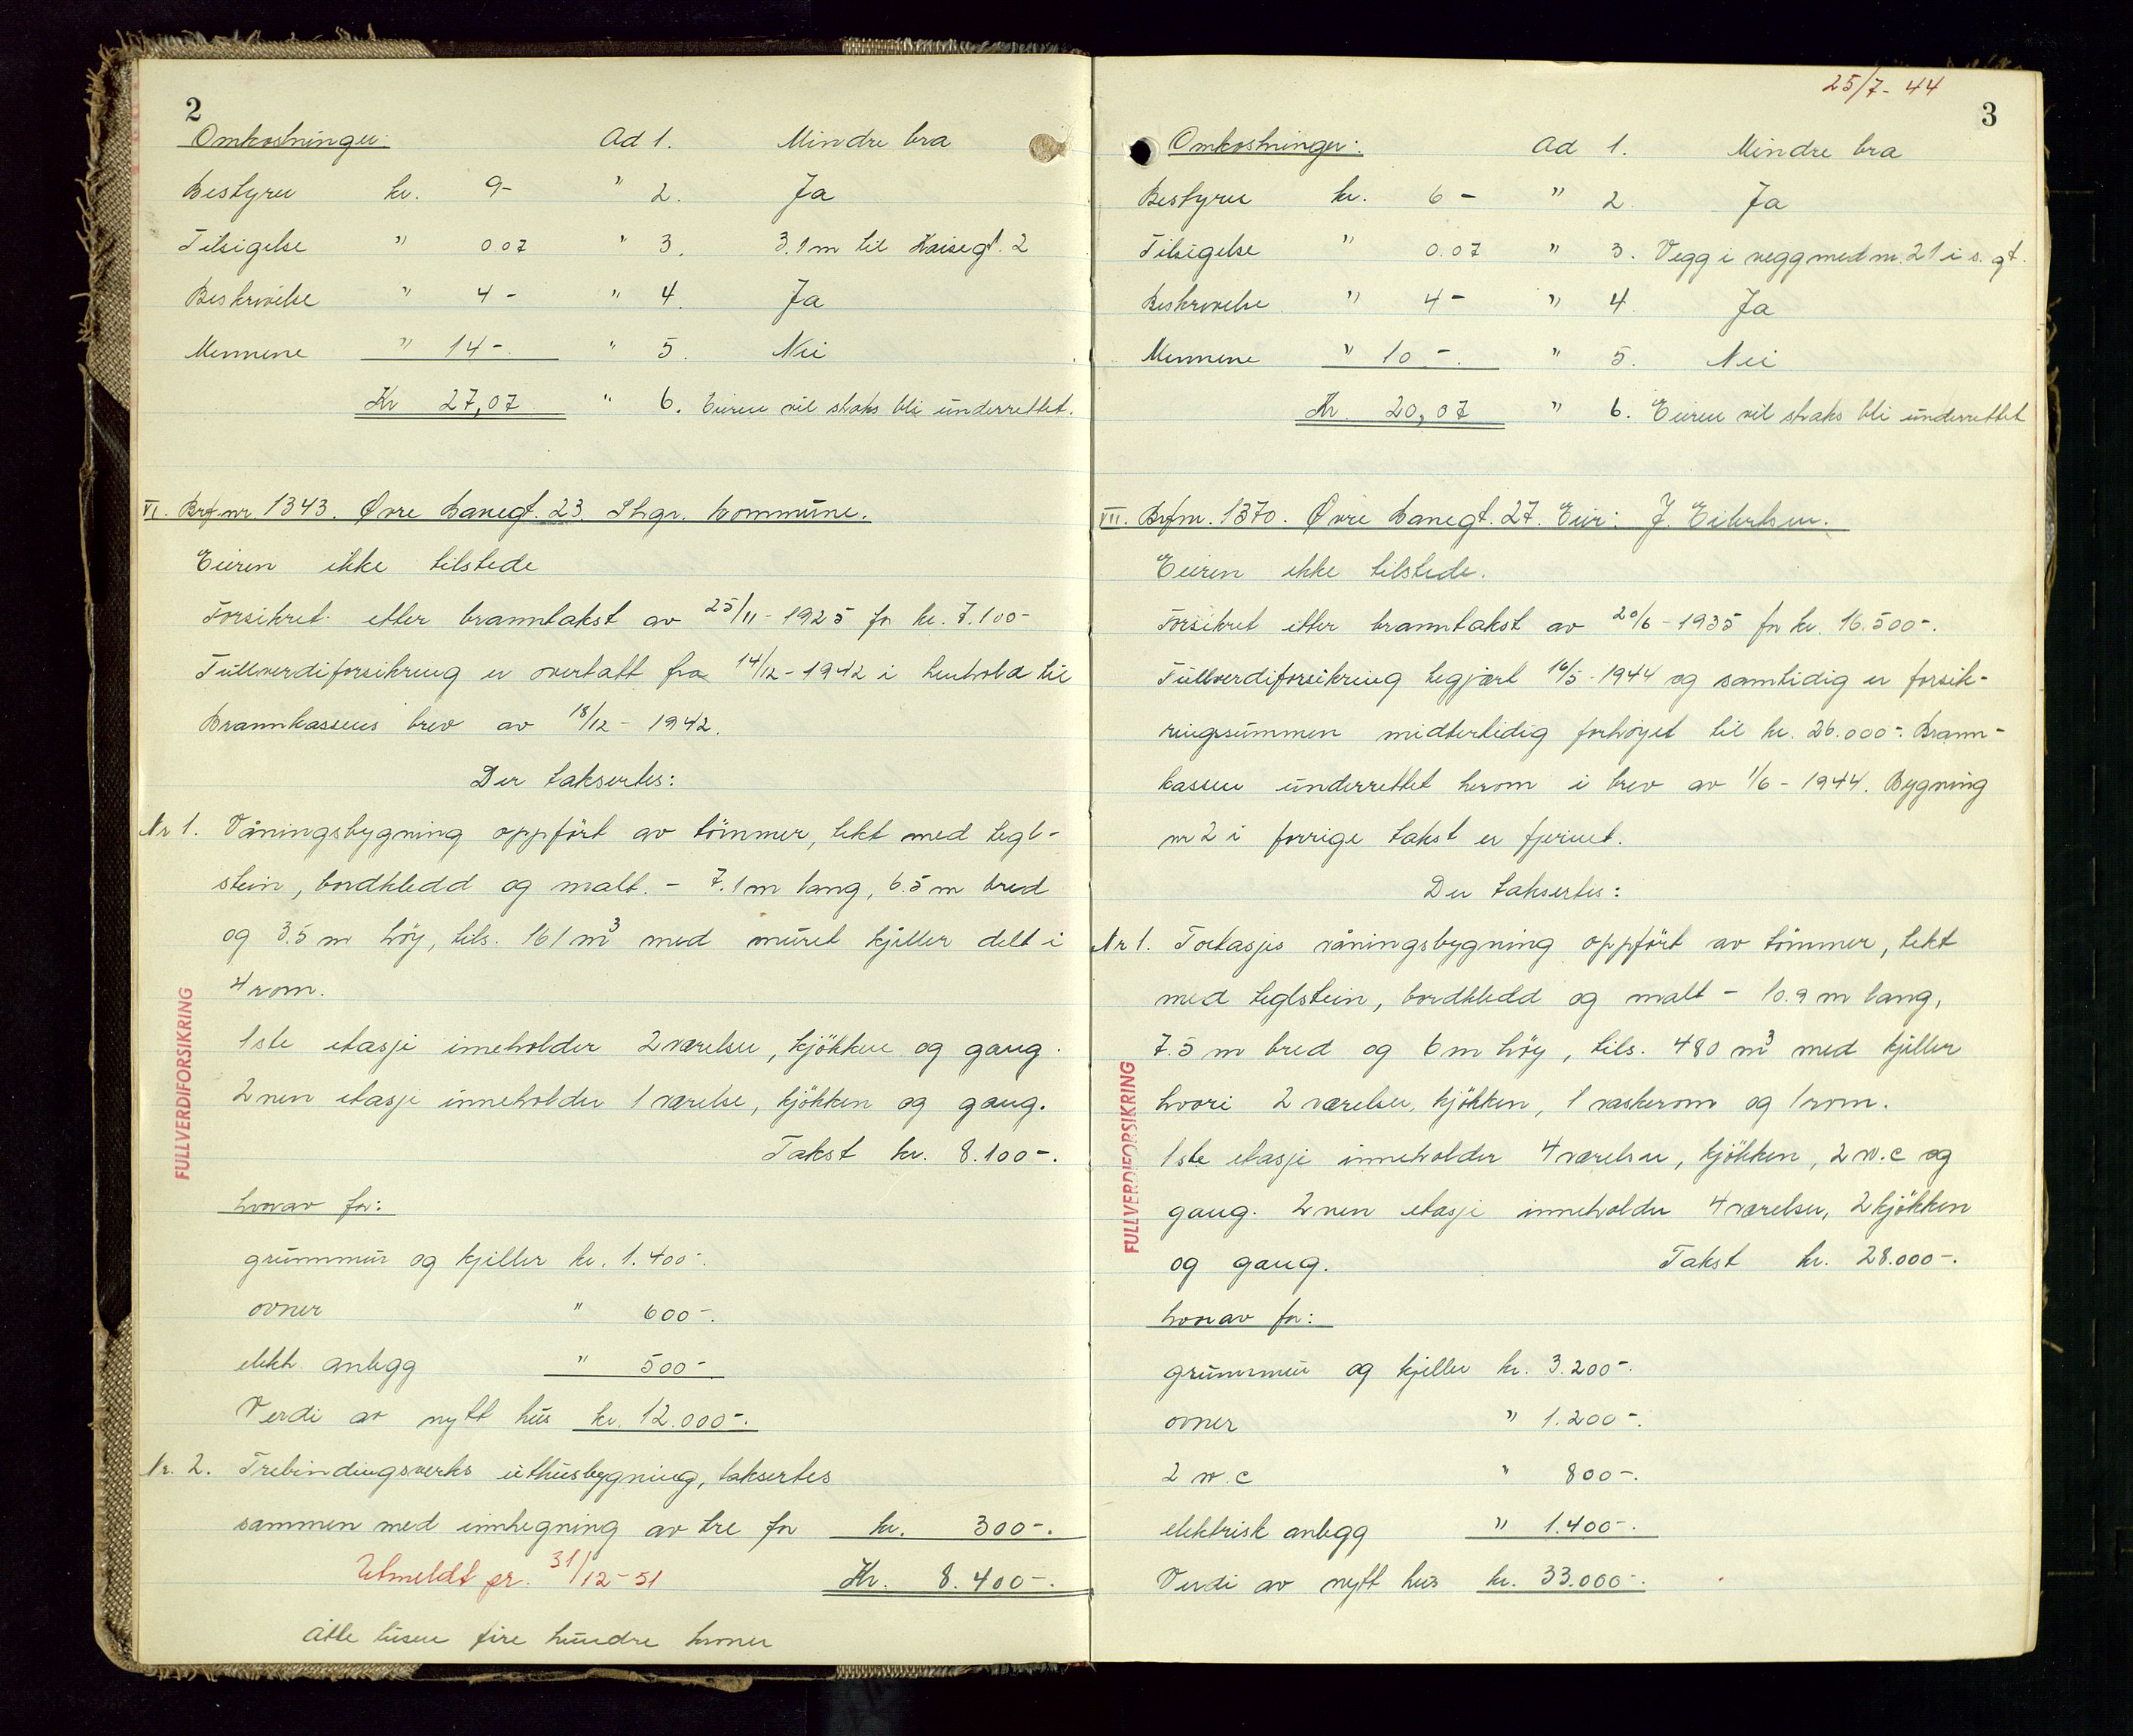 2
Omkostninger: Ad 1. Mindre bra
Bestyrer kr. 9- " 2. Ja
Tilsigelse " 0 07 " 3. 3.1 m til Kaisegt. 2
Beskrivelse " 4- " 4. Ja
Mennene " 14-. " 5. Nei
Kr 27,07 " 6. Eieren vil straks bli underrettet.
VI. Brf.nr. 1343. Øvre Banegt. 23. Shgr. kommune.
Eieren ikke tilstede
Forsikret etter branntakst av 25/11-1925 for kr. 7.100-
Fullverdiforsikring er overtatt fra 14/12-1942 i henhold til
Brannkassens brev av 18/12-1942.
Der taksertes:
Nr 1. Våningsbygning oppført av tömmer, tekt med tegl-
stein, bordkledd og malt. - 7.1 m lang, 6.5 m bred
og 3.5 m höy, tils. 161 m3 med muret kjeller delt i
4 rom.
1ste etasje inneholder 2 værelser, kjökken og gang.
2nen etasje inneholder 1 værelse, kjökken og gang.
Takst kr. 8.100-.
hvorav for:
grunnmur og kjeller kr. 1.400-.
ovner " 600-.
elektr. anlegg " 500-
Verdi av nytt hus kr. 12.000-.
Nr. 2. Trebindingsverks uthusbygning, taksertes
sammen med innhegning av tre for kr. 300-.
Utmeldt pr. 31/12-51 Kr. 8.400-.
Åtte tusen fire hundre kroner
FULLVERDIFORSIKRING
25/7-44
3
Omkostninger: Ad 1. Mindre bra
Bestyrer kr. 6- " 2. Ja
Tilsigelse " 0.07 " 3. Vegg i vegg med nr. 21 i s. gt.
Beskrivelse " 4- " 4. Ja
Mennene " 10-. " 5. Nei
Kr. 20,07 " 6. Eieren vil straks bli underrettet
VII. Brfnr. 1370. Øvre Banegt. 27. Eier: J. Eilertsen.
Eieren ikke tilstede.
Forsikret etter branntakst av 20/6-1935 for kr. 16.500-.
Fullverdiforsikring begjært 16/5-1944 og samtidig er forsik-
ringssummen midlertidig forhöyet til kr. 26.000-. Brann-
kassen underrettet herom i brev av 1/6-1944. Bygning
nr 2 i forrige takst er fjernet.
Der taksertes:
Nr 1. Toetasjes våningsbygning oppfört av tömmer, tekt
med teglstein, bordkledd og malt - 10.9 m lang,
7.5 m bred og 6 m höy, tils. 480 m3 med kjeller
hvori 2 værelser, kjökken, 1 vaskerom og 1 rom.
1ste etasje inneholder 4 værelser, kjökken, 2 w.c og
gang. 2nen etasje inneholder 4 værelser, 2 kjökken
og gang. Takst kr. 28.000-.
hvorav for:
grunnmur og kjeller kr. 3.200-.
ovner " 1.200-.
2 w.c " 800-.
elektrisk anlegg " 1.400-.
Verdi av nytt hus kr. 33.000-.
FULLVERDIFORSIKRING